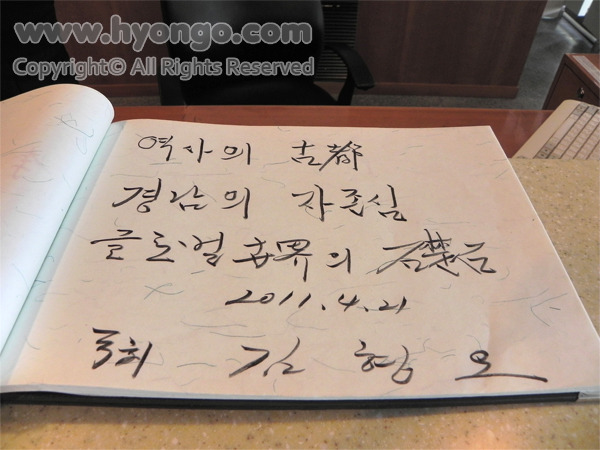 www.hyongo.com
Copyright© All Rights Reserved
역사의 古都
경남의 자존심
글로벌 世界의 礎石
2011.4.21
국회 김 형 오